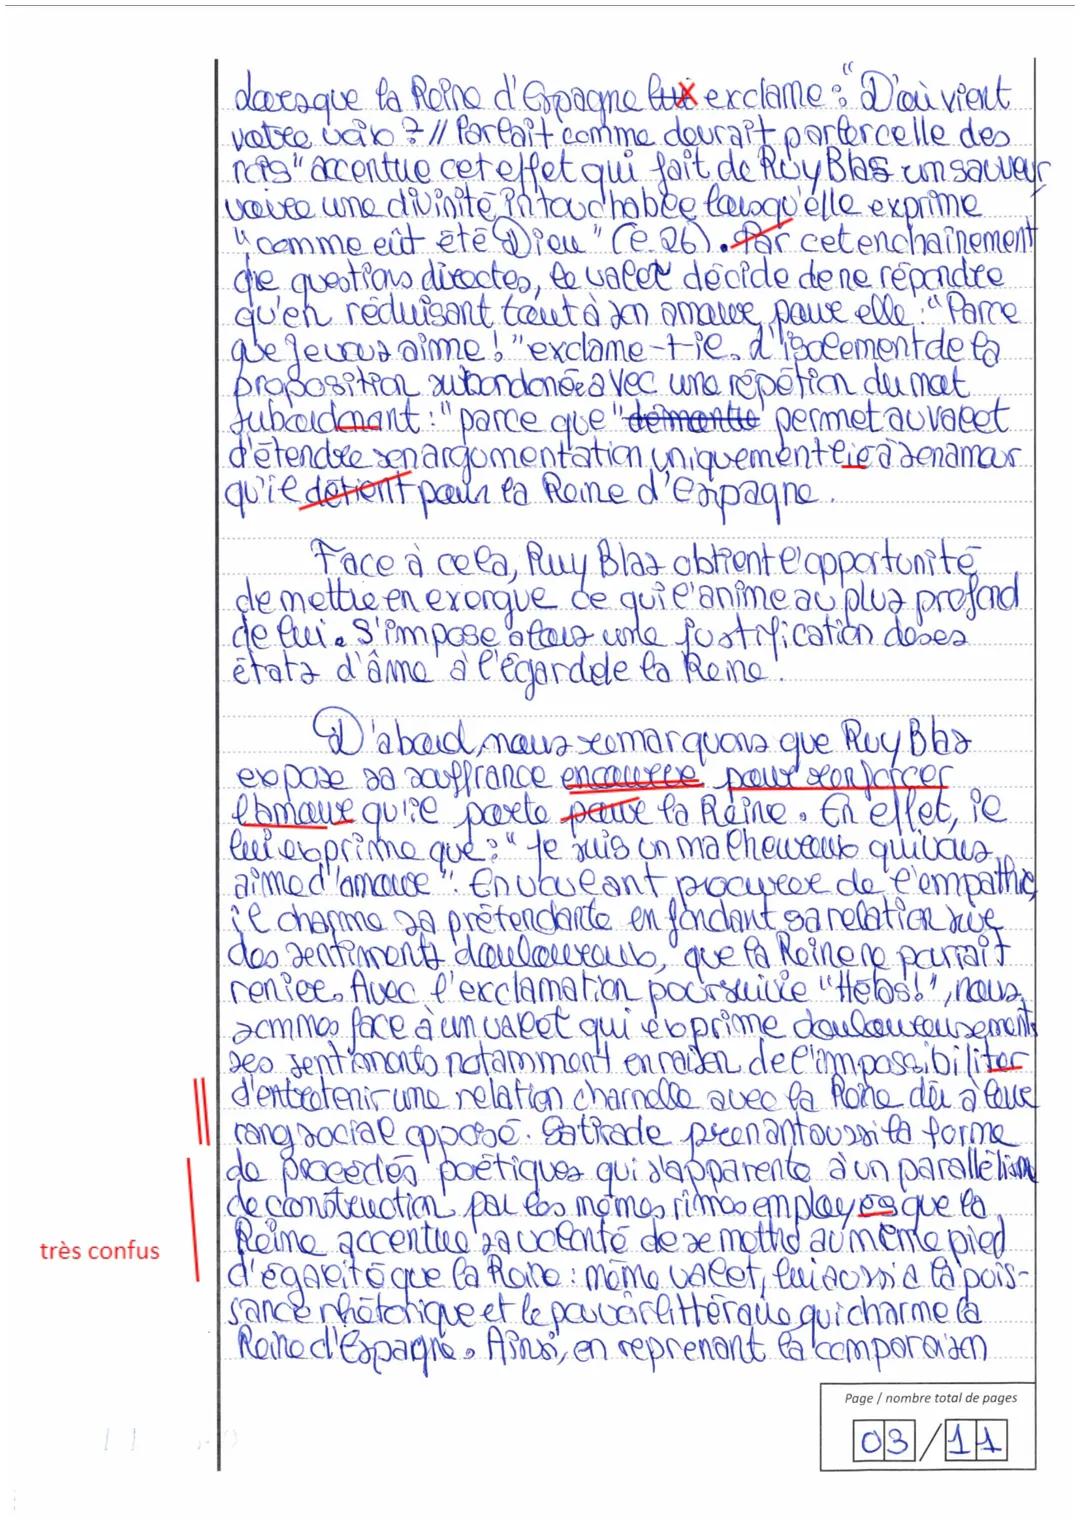 lorsque la Reine d'Espagne lui exclame : "D'où vient
votre voix ? // Parlait comme devrait parler celle des
rois" accentue cet effet qui fait de Ruy Blas un sauveur
voire une divinité intouchable lorsqu'elle exprime
"comme eût été Dieu" (l. 26). Par cet enchaînement
de questions directes, le valet décide de ne répondre
qu'en réduisant tout à son amour pour elle : "Parce
que je vous aime !" exclame-t-il. L'isolement de la
proposition subordonée avec une répétion du mot
subordonant : "parce que" permet au valet
d'étendre son argumentation uniquement lié à son amour
qu'il détient pour la Reine d'Espagne.
Face à cela, Ruy Blas obtient l'opportunité
de mettre en exergue ce qui l'anime au plus profond
de lui. S'impose alors une justification de ses
états d'âme à l'égard de la Reine.
D'abord, nous remarquons que Ruy Blas
expose sa souffrance encourue pour renforcer
l'amour qu'il porte pour la Reine. En effet, il
lui exprime que : "Je suis un malheureux qui vous
aime d'amour". En voulant procurer de l'empathie
il charme sa prétendante en fondant sa relation sur
des sentiments douloureux, que la Reine ne pourrait
renier. Avec l'exclamation poursuivie "Hélas!", nous
sommes face à un valet qui exprime douloureusement
ses sentiments notamment en raison de l'impossibiliter
d'entretenir une relation charnelle avec la Reine dû à leur
rang social opposé. Sa tirade prenant aussi la forme
de procédés poétiques qui s'apparente à un parallélisme
de construction par les mêmes rimes employés que la
très confus
Reine accentue sa volonté de se mettre au même pied
d'égalité que la Reine : même valet, lui aussi a la puis-
sance rhétorique et le pouvoir littéraire qui charme la
Reine d'Espagne. Ainsi, en reprenant la comparaison
Page / nombre total de pages
03/11